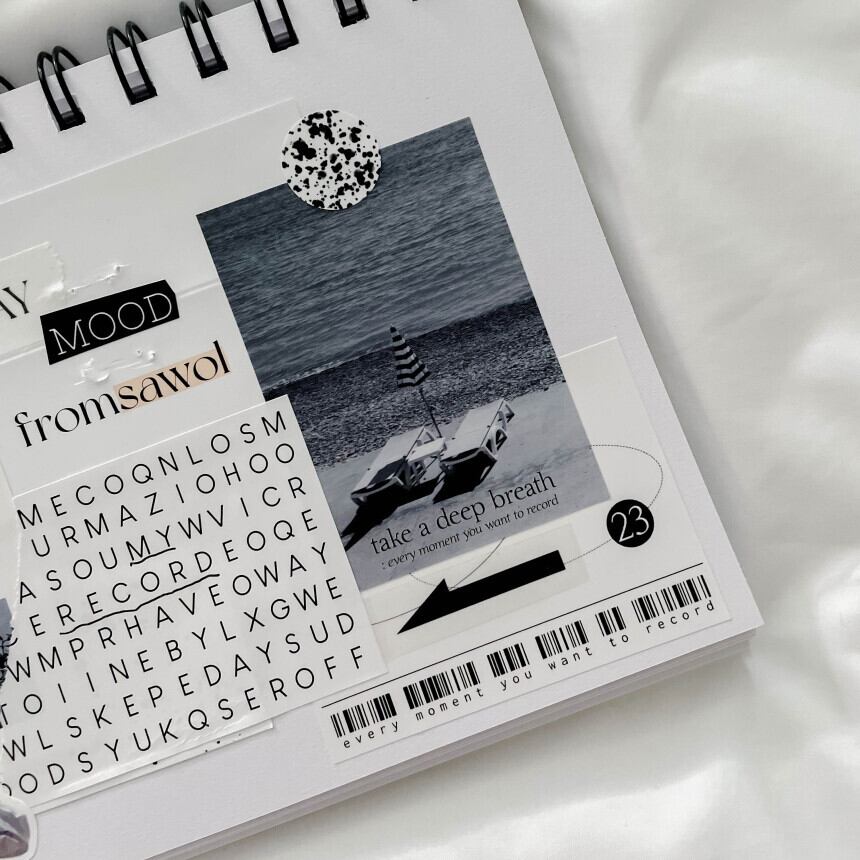 AY
MOOD
fromsawol
MECOQNLOSM
URMAZIOHOO
ASOUMYWVICR
ERECORDEOQE
WMPRHAVEOWAY
TOIINEBYLXGWE
WLSKEPEDAYSUD
OODSYUKQSEROFF
take a deep breath
: every moment you want to record
23
every moment you want to record